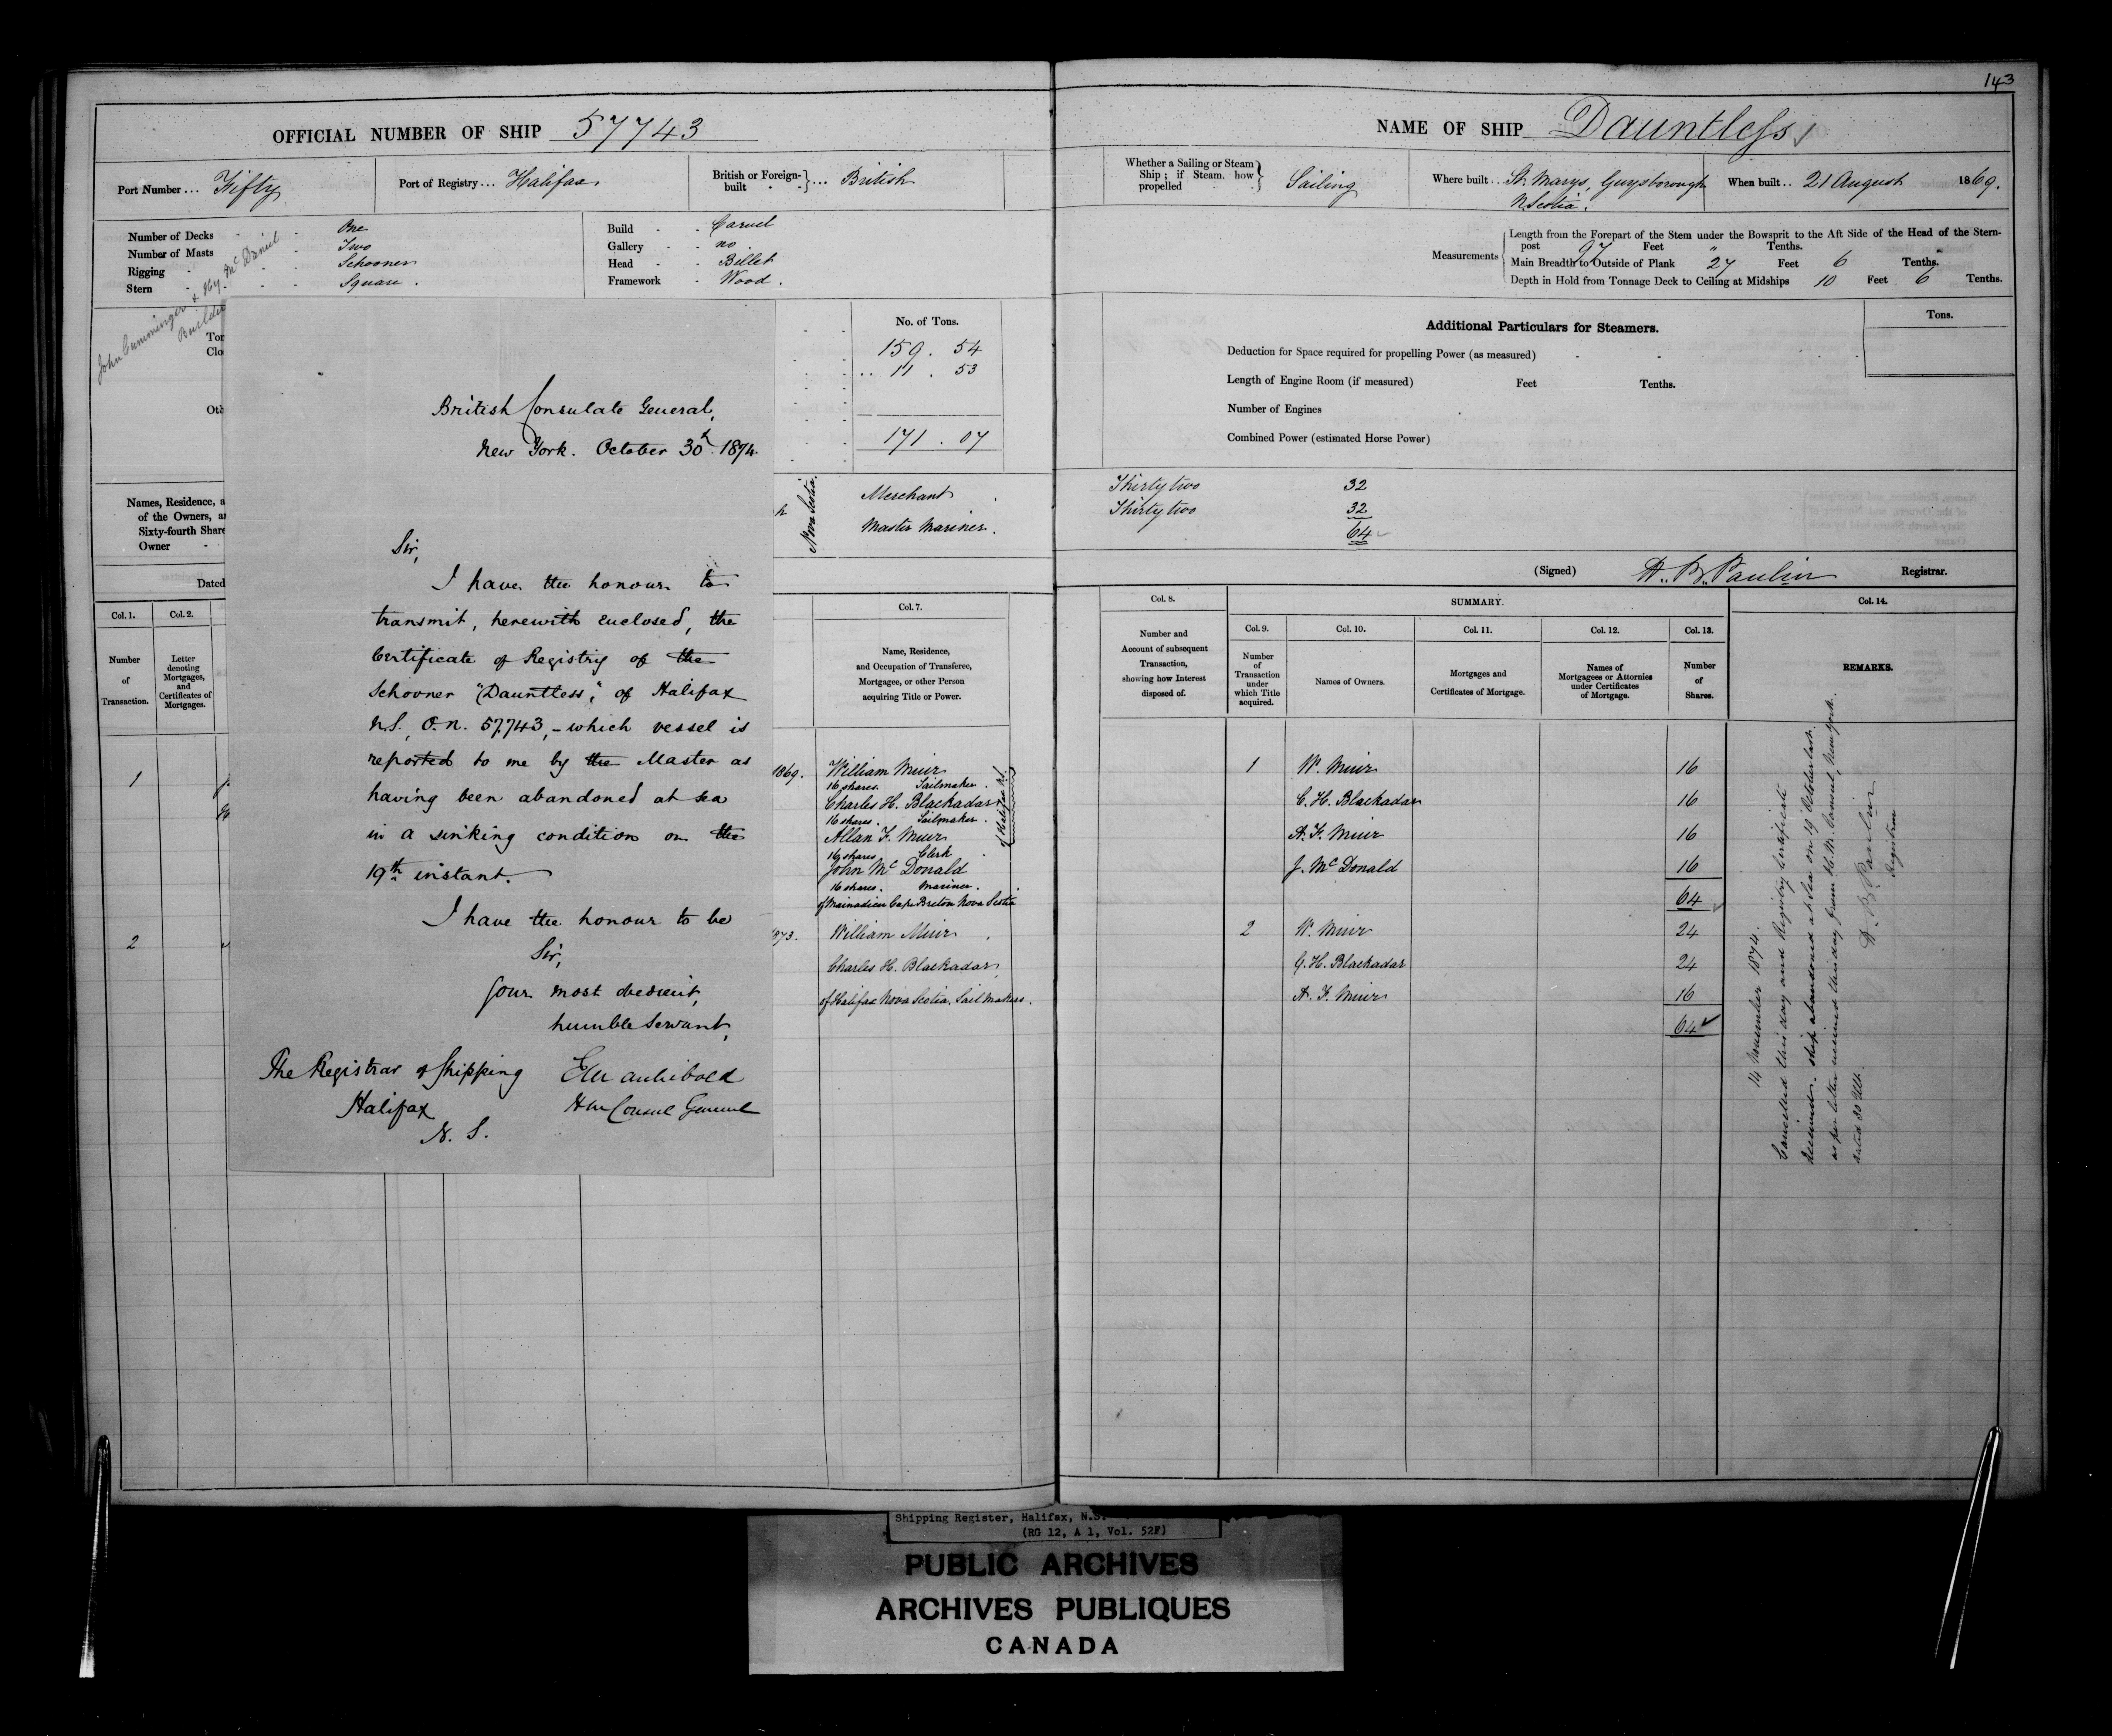 143
OFFICIAL NUMBER OF SHIP 57743
Port Number ... Fifty
Port of Registry ... Halifax
British or Foreign-built } ... British
Number of Decks - One
Number of Masts - Two
Rigging - Schooner
Stern - Square.
Build - Carvel
Gallery - no
Head - Billet
Framework - Wood.
John Cumminger & Hy. McDaniel
Builder
Ton
Clo
Oth
No. of Tons.
159. 54
.. 11. 53
171. 07
Names, Residence, a
of the Owners, a
Sixty-fourth Share
Owner -
Nova Scotia.
Merchant
Master Mariner.
Dated
British Consulate General,
New York. October 30th 1874.
Sir,
I have the honour to
transmit, herewith enclosed, the
Certificate of Registry of the
Schooner "Dauntless," of Halifax
N.S., O.N. 57,743, - which vessel is
reported to me by the Master as
having been abandoned at sea
in a sinking condition on the
19th instant.
I have the honour to be
Sir,
Your most obedient,
humble servant,
EM Archibald
HM Consul General
The Registrar of Shipping
Halifax
N. S.
Col. 1.
Col. 2.
Col. 7.
Number of Transaction.
Letter denoting Mortgages, and Certificates of Mortgages.
Name, Residence,
and Occupation of Transferee,
Mortgagee, or other Person
acquiring Title or Power.
1
1869.
William Muir
16 shares. Sailmaker.
Charles H. Blackadar
16 shares. Sailmaker.
Allan F. Muir
16 shares Clerk
of Halifax N.S.
John McDonald
16 shares. Mariner.
of Mainadieu Cape Breton Nova Scotia
2
1873.
William Muir
Charles H. Blackadar
of Halifax Nova Scotia. Sail Makers.
NAME OF SHIP Dauntless
Whether a Sailing or Steam Ship; if Steam, how propelled } Sailing
Where built .. St. Marys, Guysborough
N Scotia.
When built .. 21 August 1869.
Measurements
Length from the Forepart of the Stem under the Bowsprit to the Aft Side of the Head of the Stern-
post 97 Feet " Tenths.
Main Breadth to Outside of Plank 27 Feet 6 Tenths.
Depth in Hold from Tonnage Deck to Ceiling at Midships 10 Feet 6 Tenths.
Additional Particulars for Steamers.
Tons.
Deduction for Space required for propelling Power (as measured)
Length of Engine Room (if measured) Feet Tenths.
Number of Engines
Combined Power (estimated Horse Power)
Thirty two 32
Thirty two 32
64
(Signed) H. B. Paulin Registrar.
Col. 8.
SUMMARY.
Col. 14.
Col. 9.
Col. 10.
Col. 11.
Col. 12.
Col. 13.
Number and
Account of subsequent
Transaction,
showing how Interest
disposed of.
Number of Transaction under which Title acquired.
Names of Owners.
Mortgages and
Certificates of Mortgage.
Names of
Mortgagees or Attornies
under Certificates
of Mortgage.
Number of Shares.
REMARKS.
1 W. Muir 16
C. H. Blackadar 16
A. F. Muir 16
J. McDonald 16
64
2 W. Muir 24
C. H. Blackadar 24
A. F. Muir 16
64
14 November 1874.
Cancelled this day and Registry Certificate
ship abandoned at sea on 19 October last.
as per letter received this day from H.M. Consul, New York.
dated 30 Ult.
H. B. Paulin
Registrar
Shipping Register, Halifax, N.S.
(RG 12, A 1, Vol. 52F)
PUBLIC ARCHIVES
ARCHIVES PUBLIQUES
CANADA